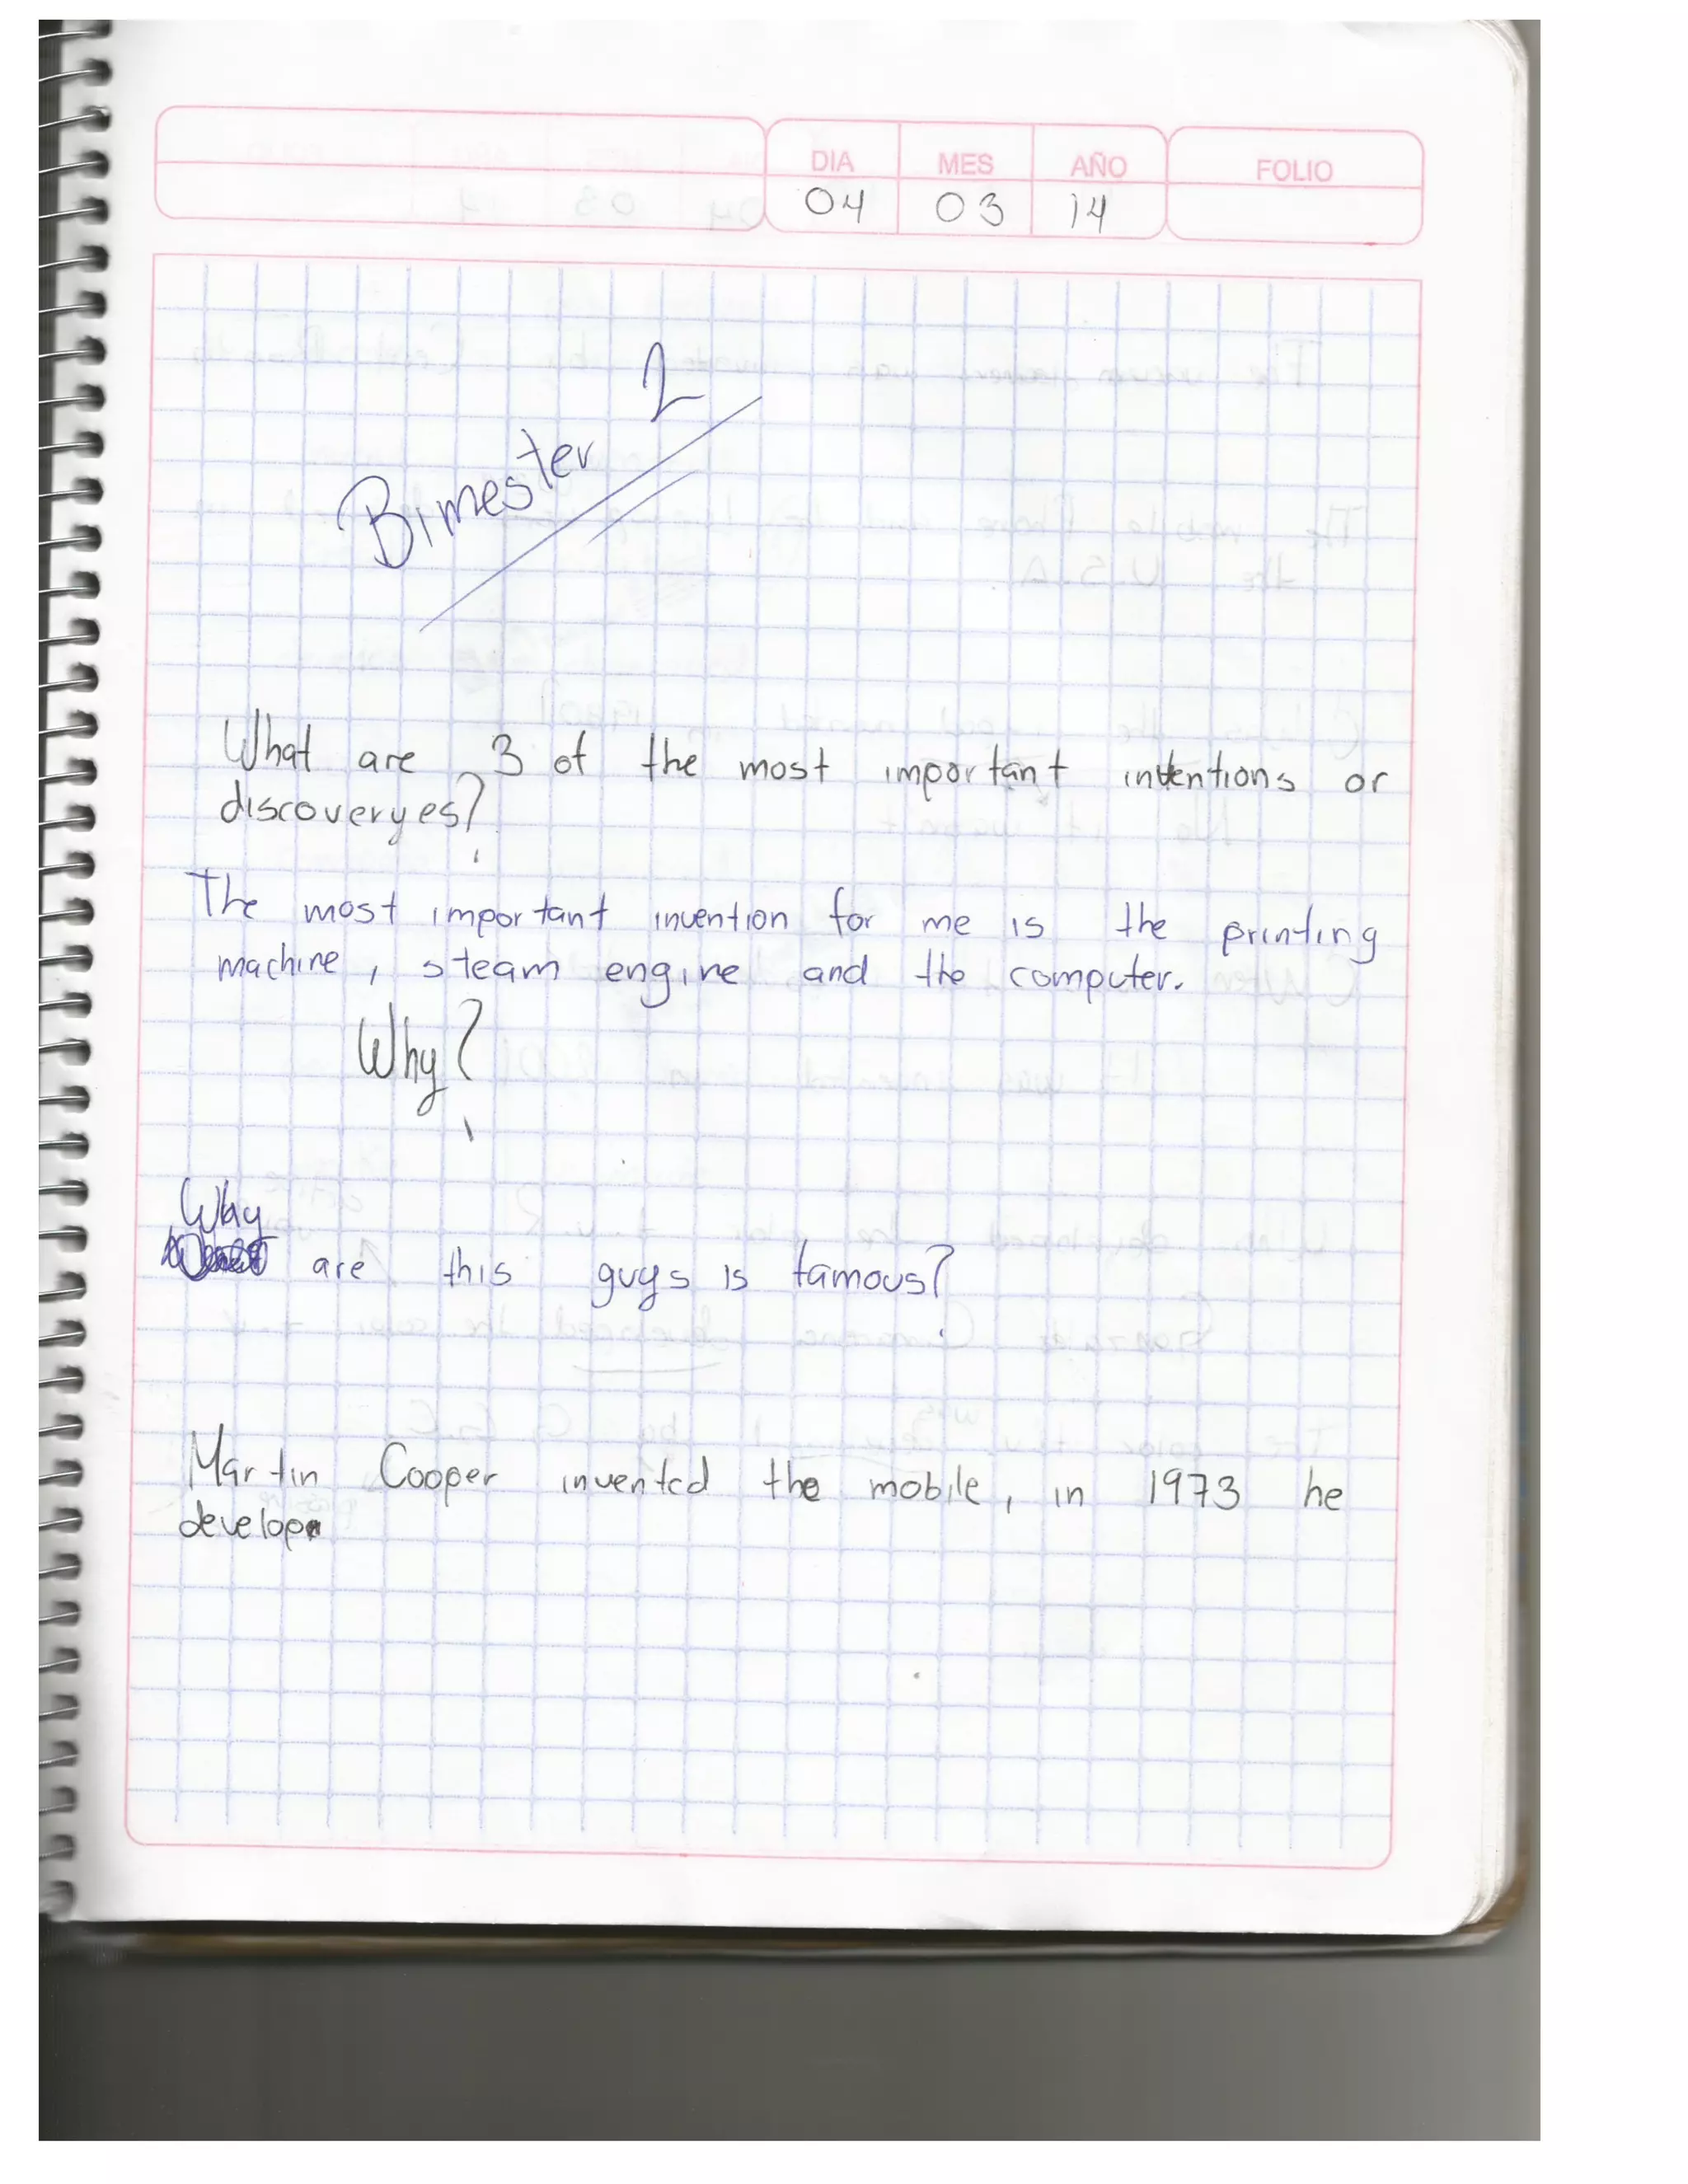 DIA MES AÑO FOLIO
04 03 14
Bimester 2
What are 3 of the most important inventions or
discoveryes?
The most important invention for me is the printing
machine, steam engine and the computer.
Why?
Why
are this guys is famous?
Martin Cooper invented the mobile, in 1973 he
develop